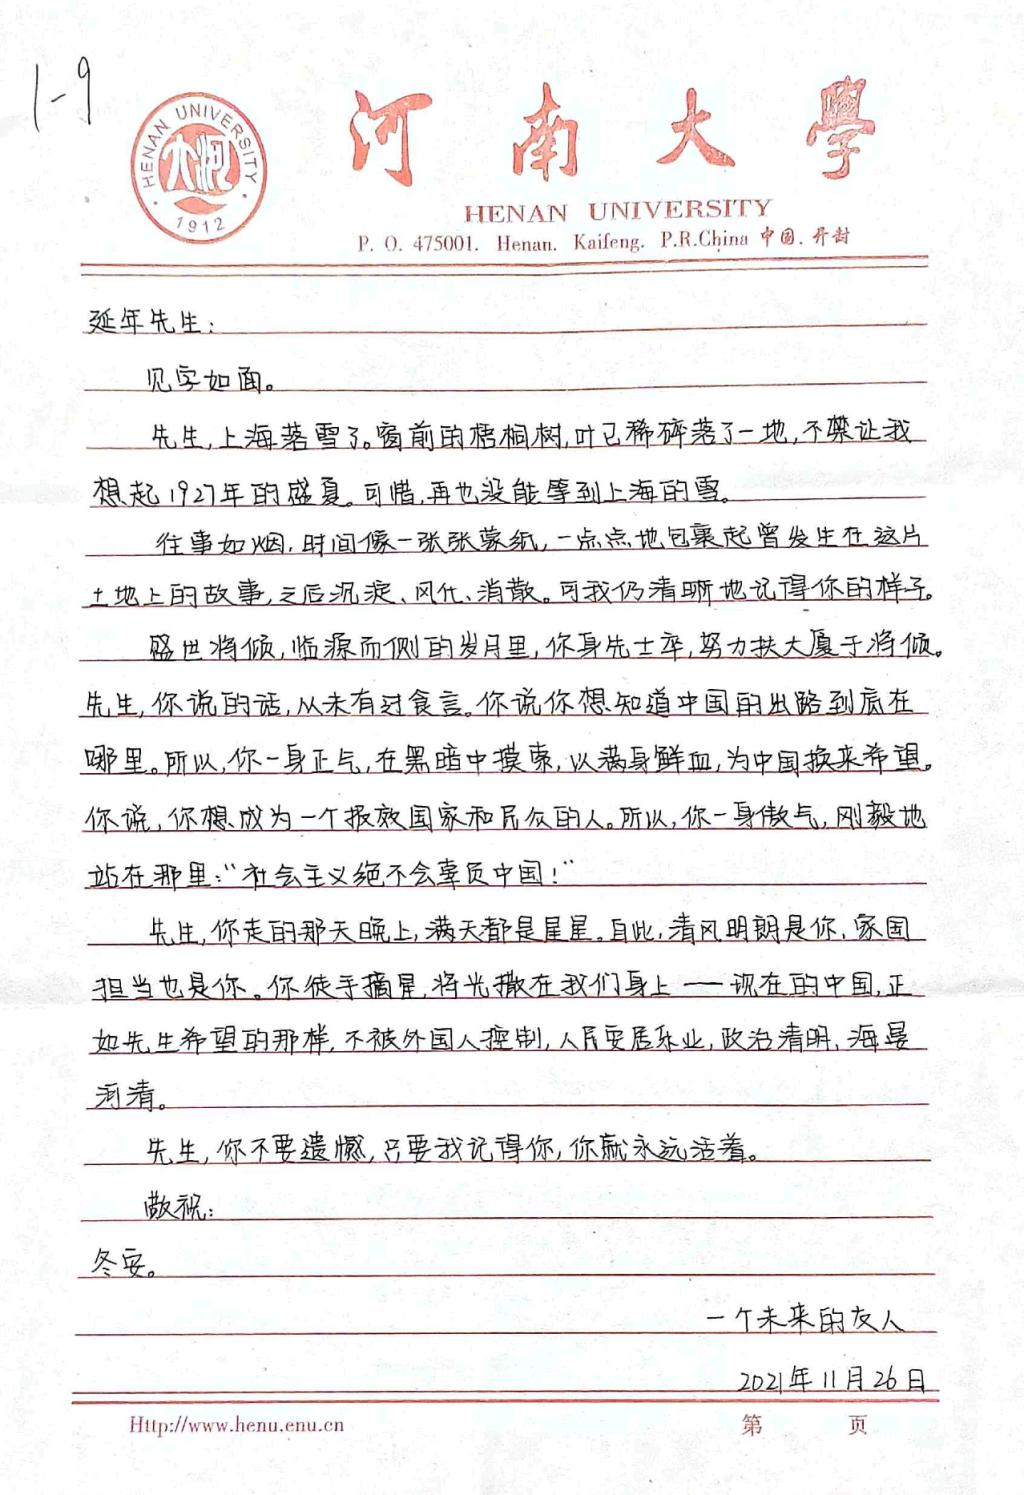 1-9
HENAN UNIVERSITY
河大
1912
河南大學
HENAN UNIVERSITY
P. O. 475001. Henan. Kaifeng. P.R.China 中国.开封
延年先生:
见字如面。
先生,上海落雪了。窗前的梧桐树,叶已稀碎落了一地,不禁让我
想起1927年的盛夏。可惜,再也没能等到上海的雪。
往事如烟,时间像一张张蒙纸,一点点地包裹起曾发生在这片
土地上的故事,之后沉淀、风化、消散。可我仍清晰地记得你的样子。
盛世将倾,临源而侧的岁月里,你身先士卒,努力扶大厦于将倾。
先生,你说的话,从未有过食言。你说你想知道中国的出路到底在
哪里。所以,你一身正气,在黑暗中摸索,以满身鲜血,为中国换来希望。
你说,你想成为一个报效国家和民众的人。所以,你一身傲气,刚毅地
站在那里:“社会主义绝不会辜负中国!”
先生,你走的那天晚上,满天都是星星。自此,清风明朗是你,家国
担当也是你。你徒手摘星,将光撒在我们身上——现在的中国,正
如先生希望的那样,不被外国人控制,人民安居乐业,政治清明,海晏
河清。
先生,你不要遗憾,只要我记得你,你就永远活着。
敬祝:
冬安。
一个未来的友人
2021年11月26日
Http://www.henu.enu.cn 第 页